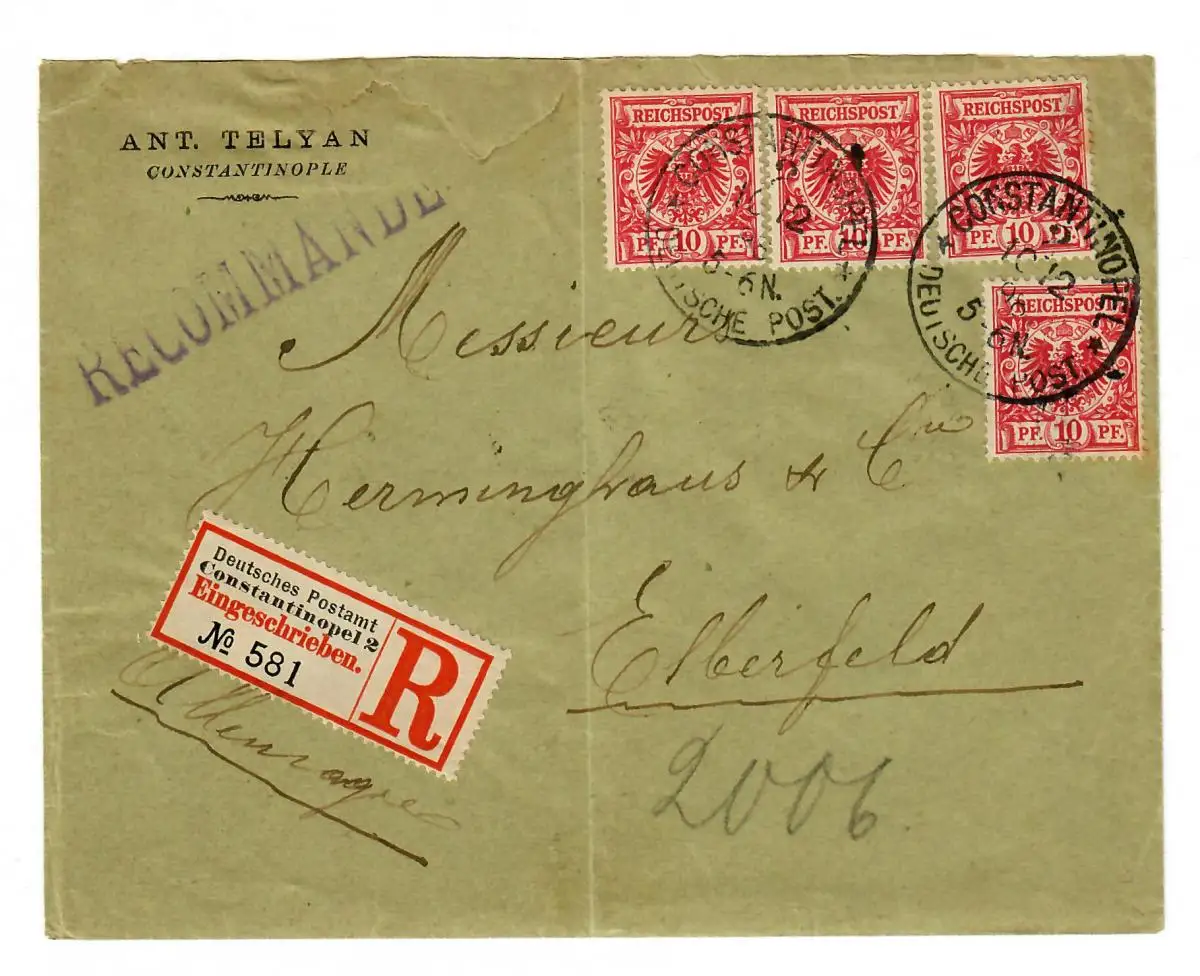 ANT. TELYAN
CONSTANTINOPLE
RECOMMANDE
REICHSPOST
PF. 10 PF.
REICHSPOST
PF. 10 PF.
REICHSPOST
PF. 10 PF.
REICHSPOST
PF. 10 PF.
CONSTANTINOPEL 2
10 12
5-6N.
DEUTSCHE POST.
CONSTANTINOPEL 2
10 12
5-6N.
DEUTSCHE POST.
Messieurs
Herminghaus & Cie
Elberfeld
Deutsches Postamt
Constantinopel 2
Eingeschrieben.
№ 581
R
Allemagne
2006.